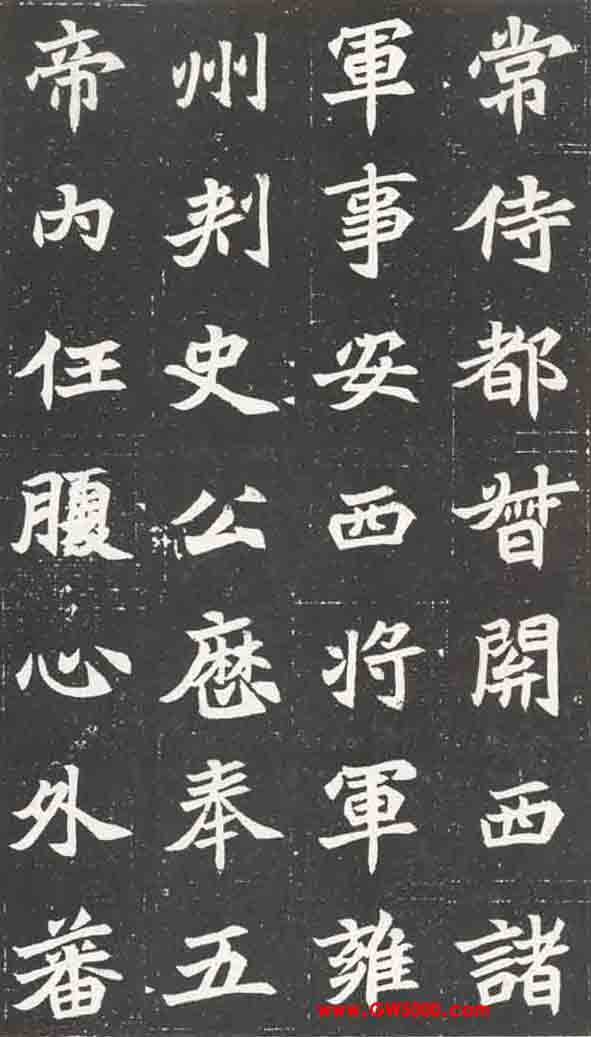 常侍都督開西諸
軍事安西將軍雍
州刺史公歷奉五
帝內任腹心外蕃
www.GW5000.com